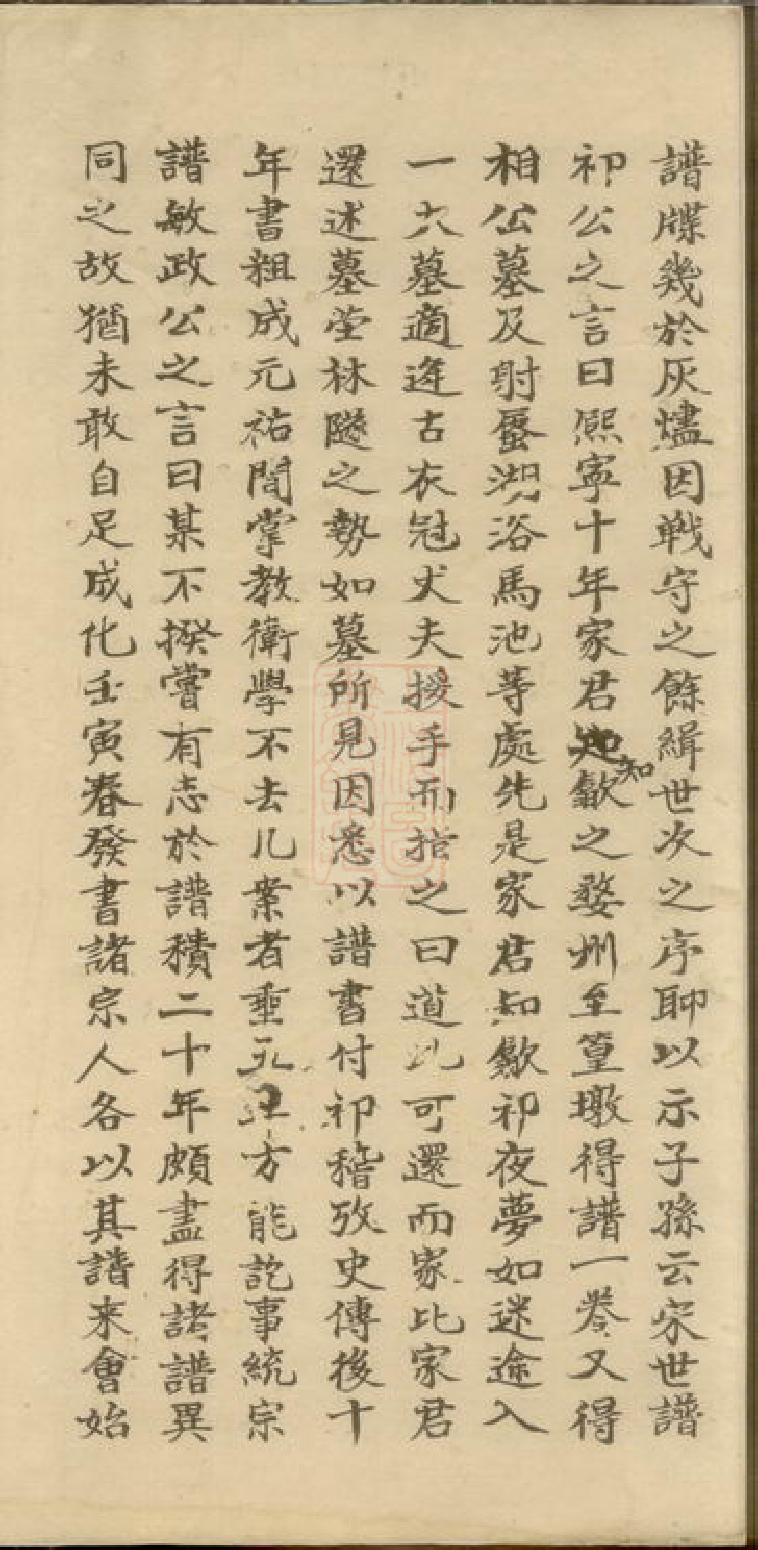 譜牒幾於灰燼因戰守之餘緝世次之序聊以示子孫云宋世譜
祁公之言曰熙寧十年家君知歙之婺州至篁墩得譜一卷又得
相公墓及射蜃湖浴馬池等處先是家君知歙祁夜夢如迷途入
一大墓適逢古衣冠丈夫援手而指之曰道此可還而家比家君
還述墓塋林隧之勢如墓所見因悉以譜書付祁稽攷史傳後十
年書粗成元祐間掌教衛學不去几案者垂九年方能訖事統宗
譜敏政公之言曰某不揆嘗有志於譜積二十年頗盡得諸譜異
同之故猶未敢自足成化壬寅春發書諸宗人各以其譜来會始